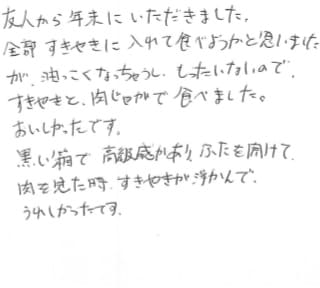 友人から年末にいただきました。
全部すきやきに入れて食べようかと思いました
が、油っこくなっちゃうし、もったいないので、
すきやきと、肉じゃがで食べました。
おいしかったです。
黒い箱で高級感があり、ふたを開けて、
肉を見た時、すきやきが浮かんで、
うれしかったです。